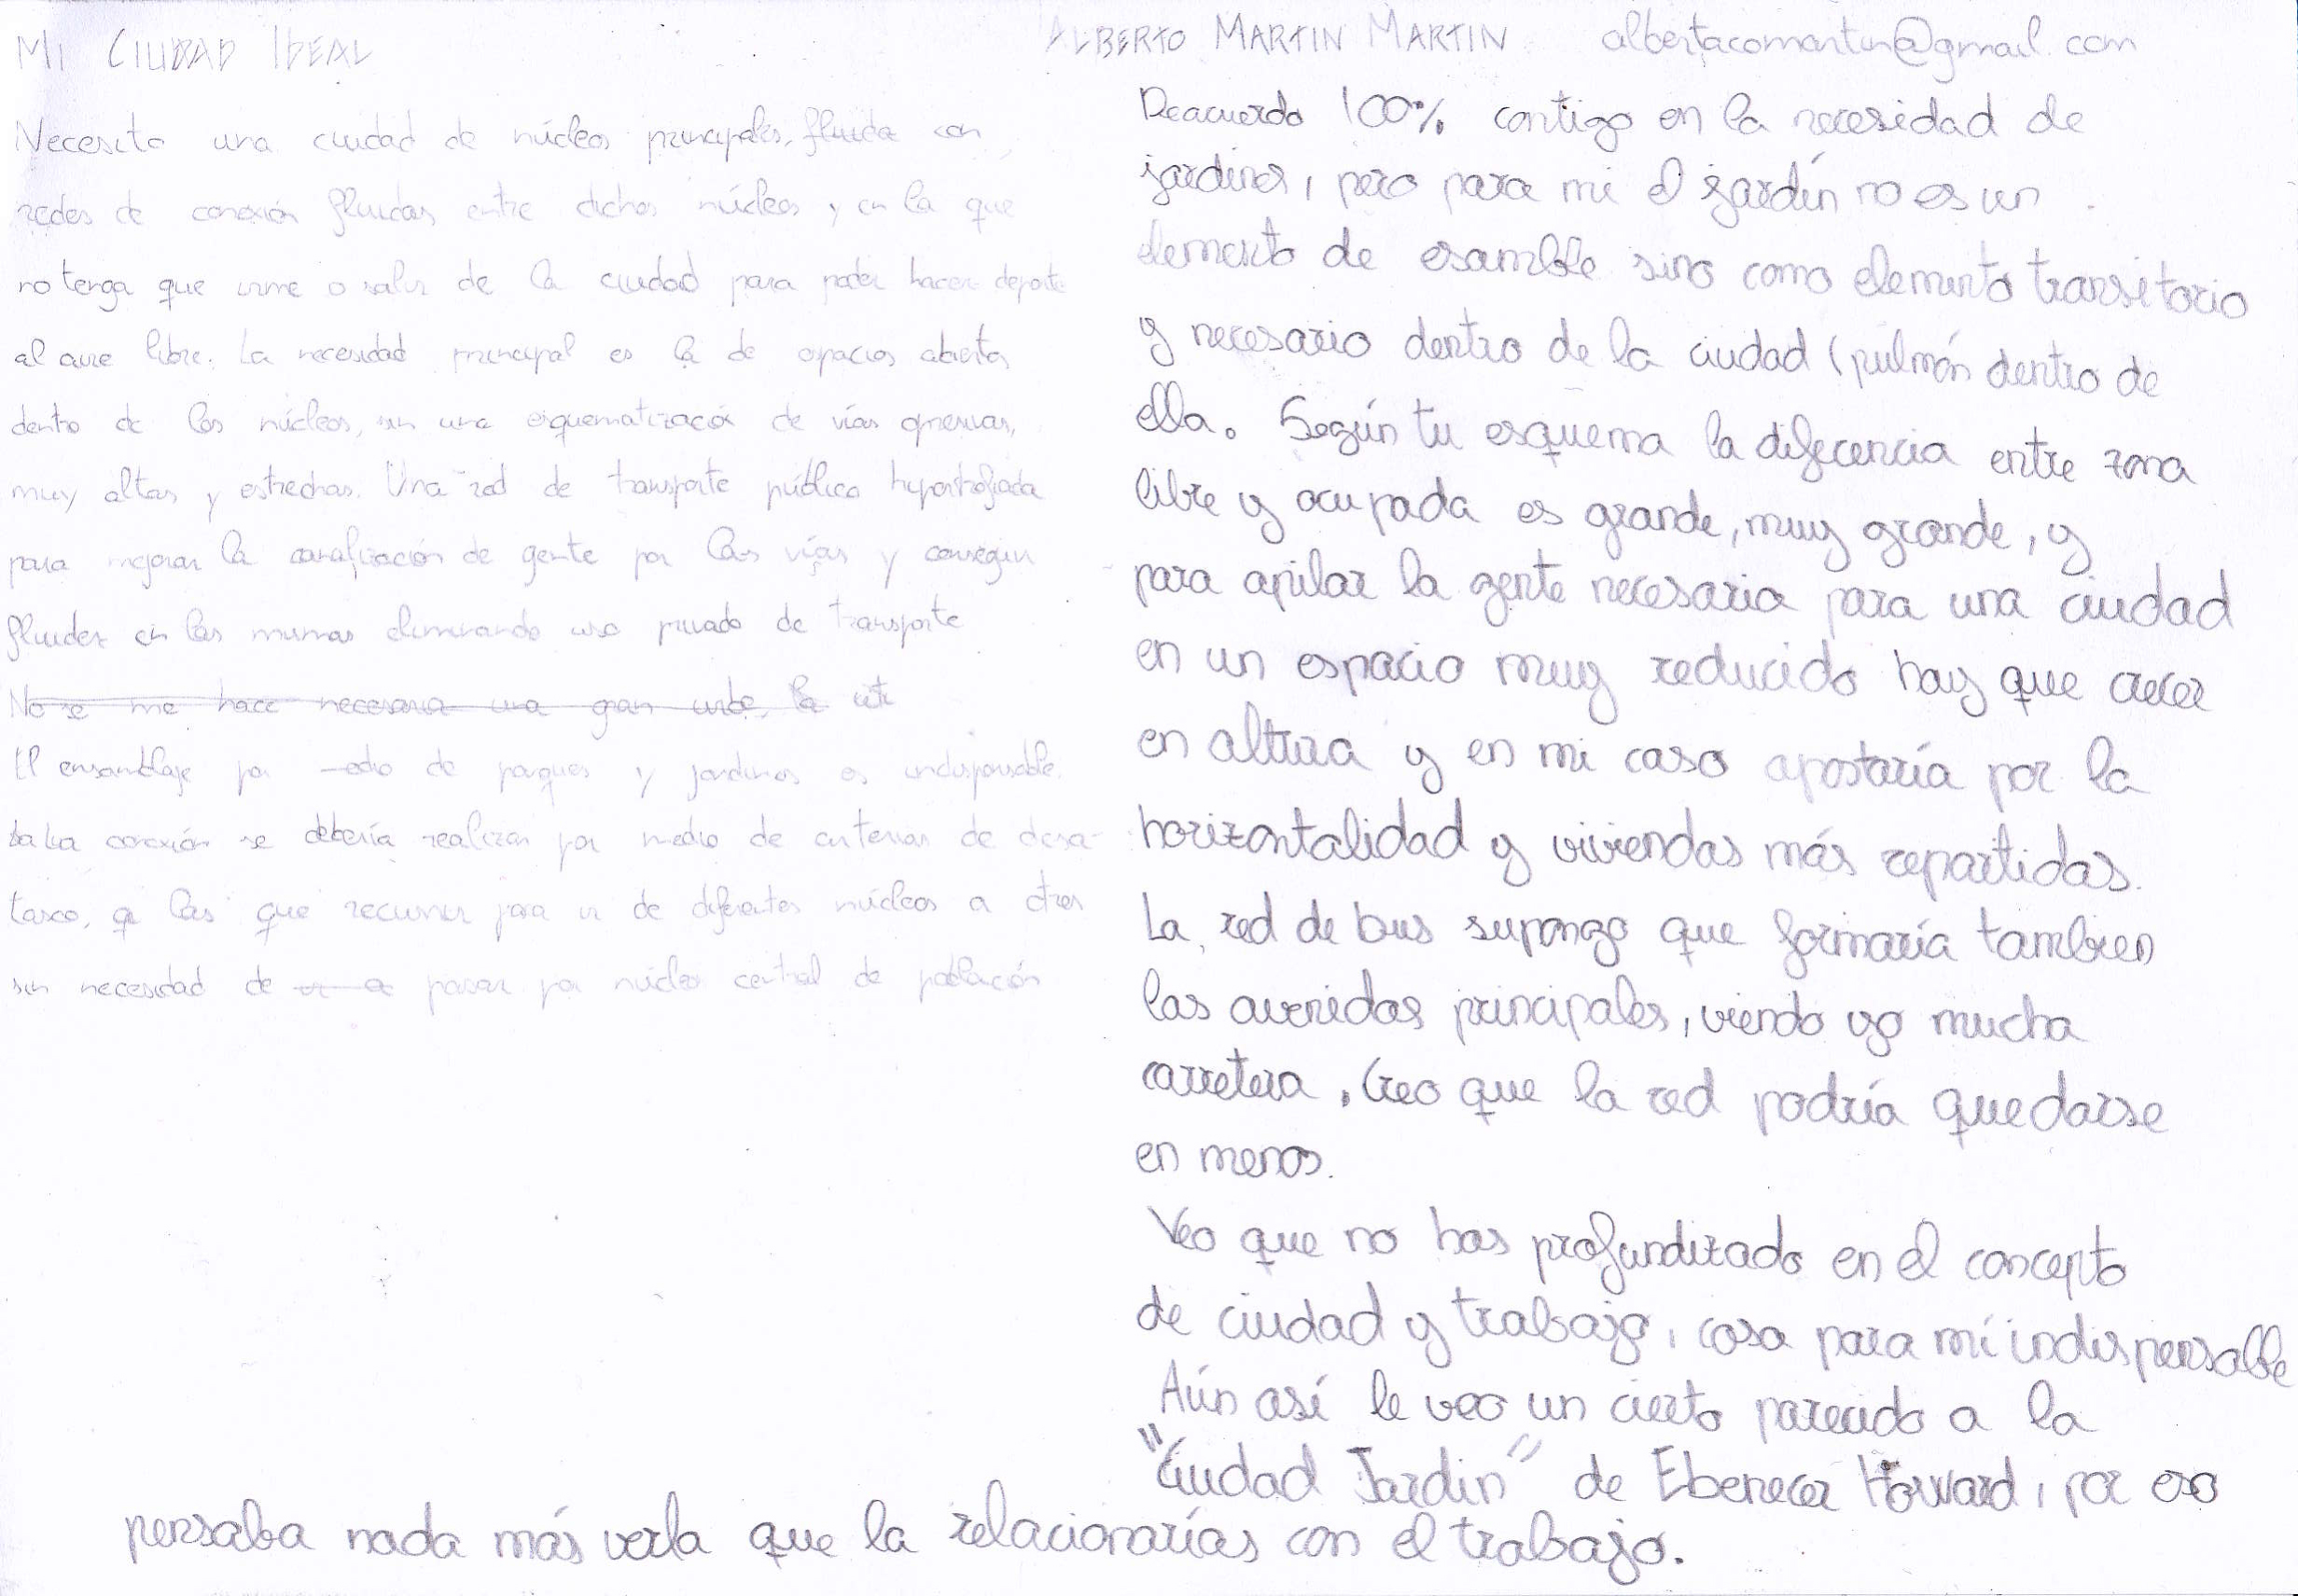 MI CIUDAD IDEAL
ALBERTO MARTIN MARTIN albertacomartin@gmail.com
Necesito una ciudad de núcleos principales, fluida con
redes de conexión fluidas entre dichos núcleos y en la que
no tenga que irme o salir de la ciudad para poder hacer deporte
al aire libre. La necesidad principal es la de espacios abiertos
dentro de los núcleos, sin una esquematización de vías opresivas,
muy altas y estrechas. Una red de transporte público hipertrofiada
para mejorar la canalización de gente por las vías y conseguir
fluidez en las mismas eliminando uso privado de transporte
No se me hace necesaria una gran urbe, la
El ensamblaje por medio de parques y jardines es indispensable.
La conexión se debería realizar por medio de arterias de desa-
tasco, a las que recurrir para ir de diferentes núcleos a otros
sin necesidad de pasar por núcleo central de población
Deacuerdo 100% contigo en la necesidad de
jardines, pero para mi el jardín no es un
elemento de esamble sino como elemento transitorio
y necesario dentro de la ciudad (pulmón dentro de
ella. Según tu esquema la difecencia entre zona
libre y ocupada es grande, muy grande, y
para apilar la gente necesaria para una ciudad
en un espacio muy reducido hay que crecer
en altura y en mi caso apostaría por la
horizontalidad y viviendas más repartidas.
La red de bus supongo que formaría tambien
las avenidas principales, viendo yo mucha
carretera. Creo que la red podría quedarse
en menos.
Veo que no has profundizado en el concepto
de ciudad y trabajo, cosa para mí indispensable
Aún así le veo un cierto parecido a la
"Ciudad Jardin" de Ebenecer Howard, por eso
pensaba nada más verla que la relacionarías con el trabajo.